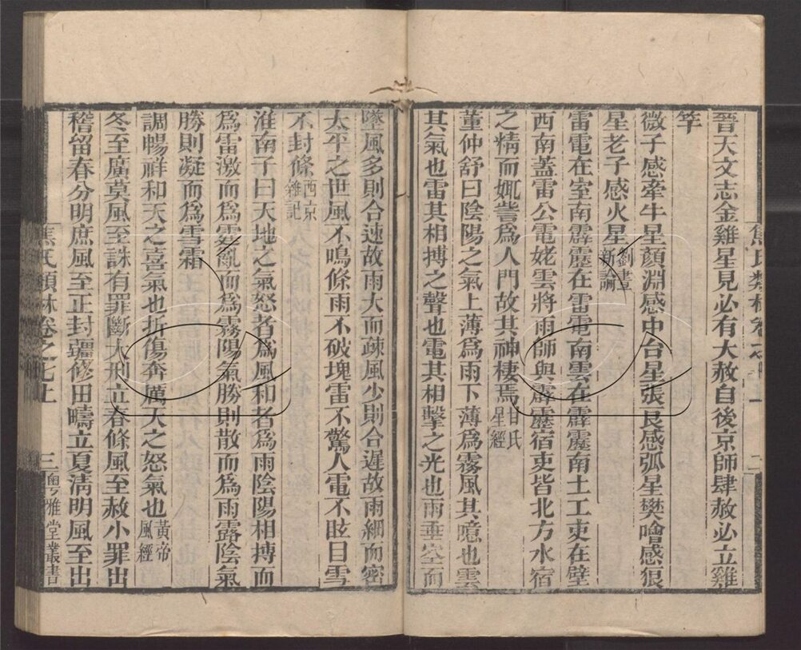 晉天文志金雞星見必有大赦自後京師肆赦必立雞
竿
微子感牽牛星顏淵感中台星張良感弧星樊噲感狼
星老子感火星劉晝新論
雷電在室南霹靂在雷電南雲在霹靂南土工吏在壁
西南蓋雷公電姥雲將雨師與霹靂宿吏皆北方水宿
之精而娵訾爲人門故其神棲焉甘氏星經
董仲舒曰陰陽之氣上薄爲雨下薄爲霧風其噫也雲
其氣也雷其相搏之聲也電其相擊之光也雨垂空而
墜風多則合速故雨大而疎風少則合遲故雨細而密
太平之世風不鳴條雨不破塊雷不驚人電不眩目雪
不封條西京雜記
淮南子曰天地之氣怒者爲風和者爲雨陰陽相搏而
爲雷激而爲霆亂而爲霧陽氣勝則散而爲雨露陰氣
勝則凝而爲雪霜
調暢祥和天之喜氣也折傷奔厲天之怒氣也黃帝風經
冬至廣莫風至誅有罪斷大刑立春條風至赦小罪出
稽留春分明庶風至正封疆修田疇立夏清明風至出
焦氏類林卷之七上
三
粵雅堂叢書